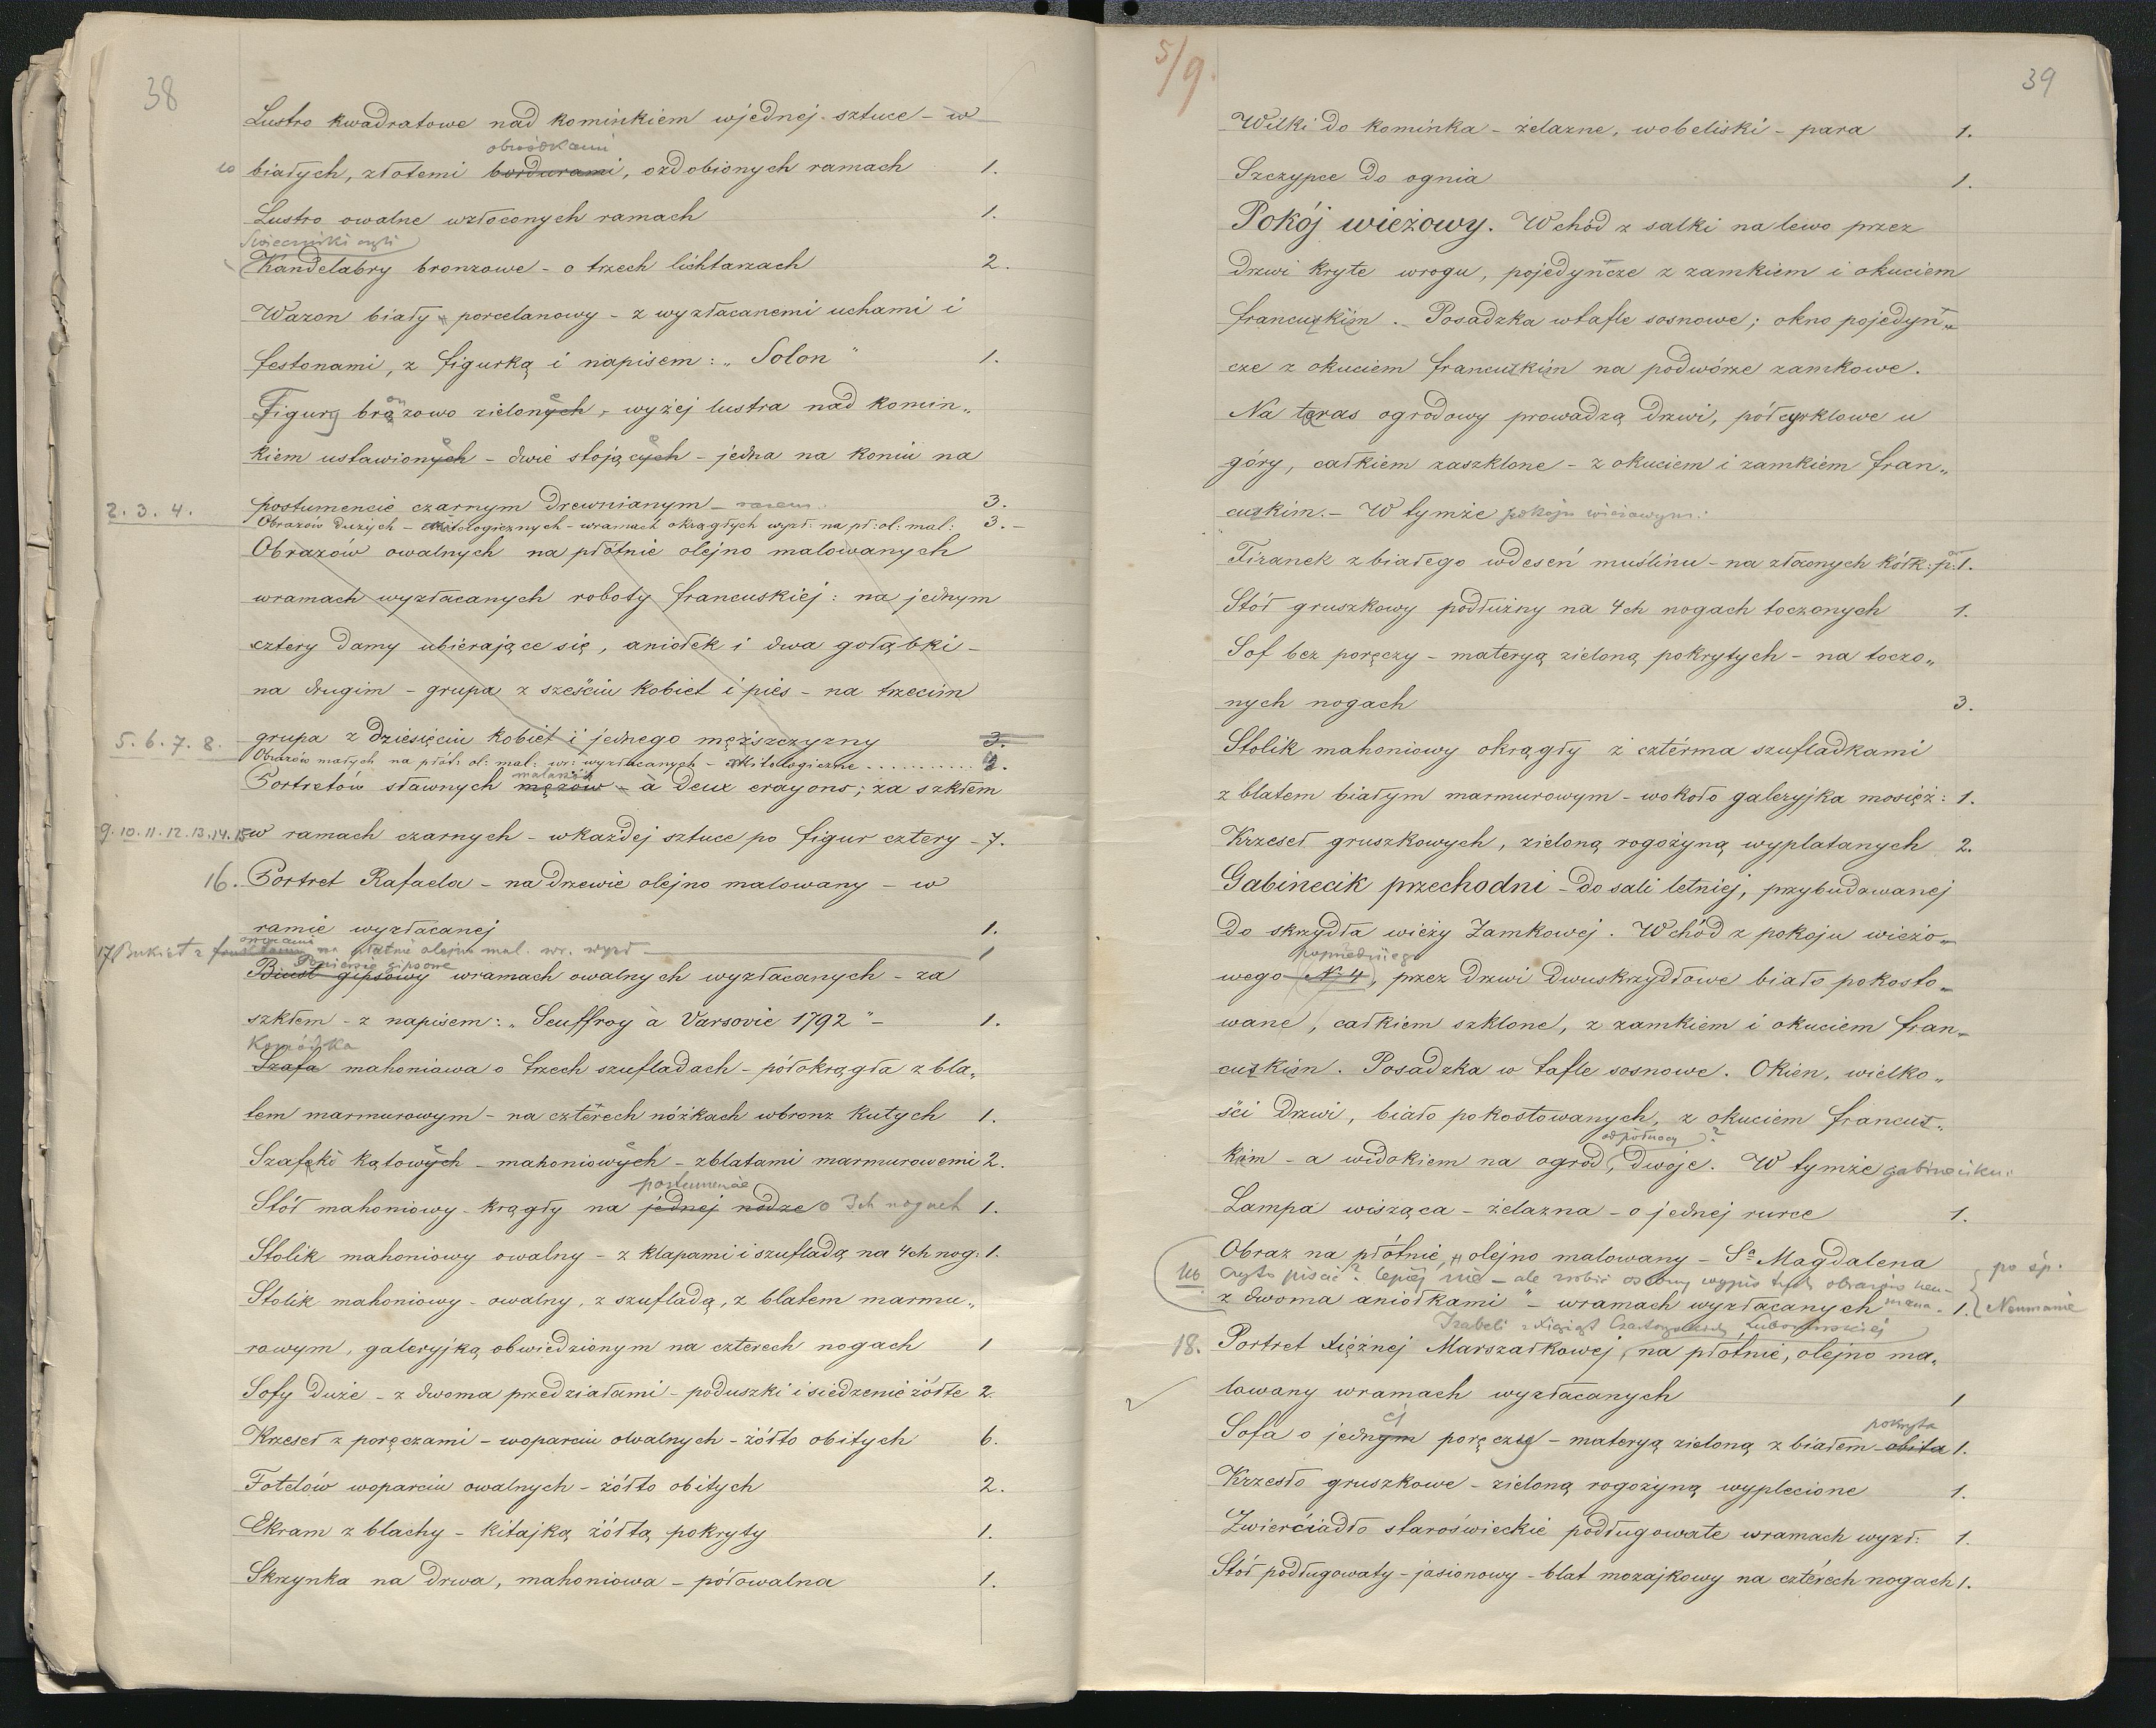 38
Lustro kwadratowe nad kominkiem wjednej sztuce - w
obwódkami
białych, złotemi bordurami, ozdobionych ramach 1.
Lustro owalne wzłoconych ramach 1.
Świeczniki czyli
Kandelabry bronzowe - o trzech lichtarzach 2.
Wazon biały - porcelanowy - z wyzłacanemi uchami i
festonami, z figurką i napisem: „Solon" 1.
Figury brązowo zielonych, wyżej lustra nad komin„
kiem ustawionych - dwie stojących - jedna na koniu na
postumencie czarnym drewnianym - razem: 3.
2. 3. 4.
Obrazów dużych - Mitologicznych - wramach okrągłych wyzł. na pł: ol: mal: 3. -
Obrazów owalnych na płótnie olejno malowanych
wramach wyzłacanych roboty francuskiej: na jednym
cztery damy ubierające się, aniołek i dwa gołąbki -
na drugim - grupa z sześciu kobiet i pies - na trzecim
grupa z dziesięciu kobiet i jednego męższczyzny 3.
5. 6. 7. 8.
Obrazów małych na płót: ol: mal: wr: wyzłacanych - Mitologiczne ........... 4.
malarzów
Portretów sławnych mężów - à deux crayons; za szkłem
9. 10. 11. 12. 13. 14. 15 w ramach czarnych - wkażdej sztuce po figur cztery - 7.
16. Portret Rafaela - na drzewie olejno malowany - w
ramie wyzłacanej 1.
17 Bukiet z na płótnie olejno mal. wr. wyzł 1
Popiersie gipsowe
Biust gipsowy wramach owalnych wyzłacanych - za
szkłem - z napisem: „Seuffroy à Varsovie 1792" - 1.
Komódka
Szafa mahoniowa o trzech szufladach - półokrągła z bla„
tem marmurowym - na czterech nóżkach wbronz kutych 1.
Szafeki kątowych - mahoniowych - zblatami marmurowemi 2.
postumencie
Stół mahoniowy - krągły na jednej nodze o 3ch nogach 1.
Stolik mahoniowy owalny - z klapami i szufladą na 4ch nog: 1.
Stolik mahoniowy - owalny, z szufladą, z blatem marmu„
rowym, galeryjką obwiedzionym na czterech nogach 1
Sofy duże - z dwoma przedziałami - poduszki i siedzenie żółte 2.
Krzeseł z poręczami - woparciu owalnych - żółto obitych 6.
Fotelów woparciu owalnych - żółto obitych 2.
Ekram z blachy - kitajką żółtą pokryty 1.
Skrzynka na drwa, mahoniowa - półowalna 1.
5/9.
39
Wilki do kominka - żelazne, wobeliski - para 1.
Szczypce do ognia 1.
Pokój wieżowy. Wchód z salki na lewo przez
drzwi kryte wrogu, pojedyńcze z zamkiem i okuciem
francuzkim. Posadzka wtafle sosnowe; okno pojedyń„
cze z okuciem francuzkim na podwórze zamkowe.
Na taras ogrodowy prowadzą drzwi, półcyrklowe u
góry, całkiem zaszklone - z okuciem i zamkiem fran„
cuzkim. - W tymże pokoju wieżowym:
Firanek zbiałego wdeseń muślinu - na złoconych kółk: par 1.
Stół gruszkowy podłużny na 4ch nogach toczonych 1.
Sof bez poręczy - materyą zieloną pokrytych - na toczo„
nych nogach 3.
Stolik mahoniowy okrągły z cztérma szufladkami
z blatem białym marmurowym - wokoło galeryjka mosięż: 1.
Krzeseł gruszkowych, zieloną rogożyną wyplatanych 2.
Gabinecik przechodni - do sali letniej, przybudowanej
do skrzydła wieży Zamkowej. Wchód z pokoju wieżo„
poprzedniego
wego (N: 4), przez drzwi dwuskrzydłowe biało pokosto„
wane, całkiem szklone, z zamkiem i okuciem fran„
cuzkim. Posadzka w tafle sosnowe. Okien, wielko„
ści drzwi, biało pokostowanych, z okuciem francuz„
od północy ?
kim - a widokiem na ogród, dwoje. W tymże gabineciku:
Lampa wisząca - żelazna - o jednej rurce 1.
Obraz na płótnie, olejno malowany - Sa Magdalena
czy to pisać? lepiej nie - ale zrobić osobny wypis tych obrazów Neumana. po śp. Neumanie
z dwoma aniołkami" - wramach wyzłacanych 1.
Izabeli z Xiążąt Czartoryskich Lubomirskiej
18. Portret Xiężnej Marszałkowej, na płótnie, olejno ma„
lowany wramach wyzłacanych 1
ej pokryta
Sofa o jednym poręczy - materyą zieloną z białem obita 1.
Krzesło gruszkowe - zieloną rogożyną wyplecione 1.
Zwierciadło staroświeckie podługowate wramach wyzł: 1.
Stół podługowaty - jasionowy - blat mozajkowy na czterech nogach 1.